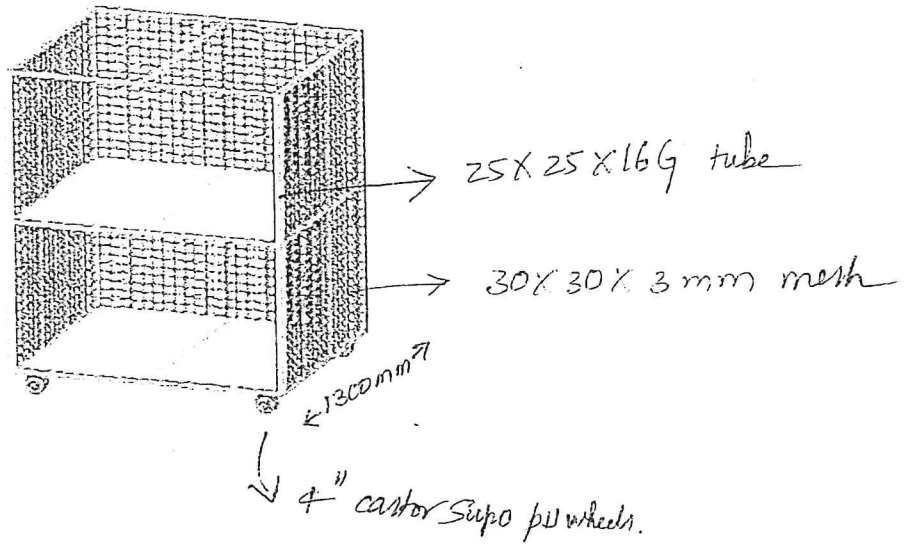 25 X 25 X 16G tube
30 X 30 X 3 mm mesh
1300mm
4" castor Supo pu wheels.